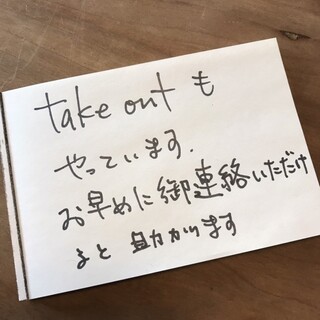 take out も
やっています.
お早めに御連絡いただけ
ると助かります